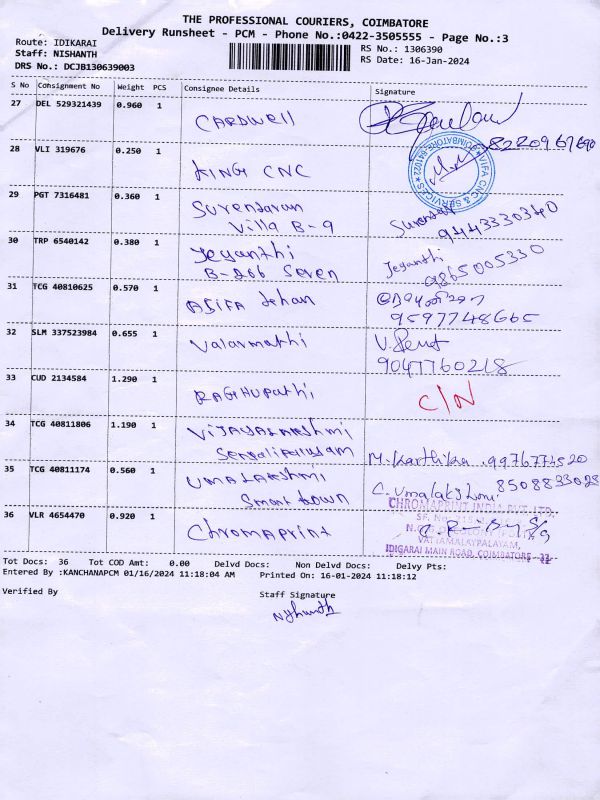 THE PROFESSIONAL COURIERS, COIMBATORE
Delivery Runsheet - PCM - Phone No.:0422-3505555 - Page No.:3
Route: IDIKARAI
RS No.: 1306390
Staff: NISHANTH
RS Date: 16-Jan-2024
DRS No.: DCJB130639003
S No Consignment No Weight PCS Consignee Details Signature
27 DEL 529321439 0.960 1
CARDWELL
8220967690
28 VLI 319676 0.250 1
KING CNC
VIFA CNC & SERVICES COIMBATORE-641022
29 PGT 7316481 0.360 1
Surendaran
Villa B-9
Surendar
9443330340
30 TRP 6540142 0.380 1
Jeyanthi
B-206 Seven
Jeyanthi
9865005330
31 TCG 40810625 0.570 1
ASIFA Jehan
9597748665
32 SLM 337523984 0.655 1
Valarmathi
9047760218
33 CUD 2134584 1.290 1
RAGHUpathi
C/N
34 TCG 40811806 1.190 1
VIJAYALAKSHmi
M. Karthika
35 TCG 40811174 0.560 1
UMALAKshmi
Smart town
C. Umalakshmi
8508833028
36 VLR 4654470 0.920 1
Chromaprint
CHROMAPRINT INDIA PVT. LTD.
VATTAMALAYPALAYAM,
IDIGARAI MAIN ROAD, COIMBATORE - 22
Tot Docs: 36 Tot COD Amt: 0.00 Delvd Docs: Non Delvd Docs: Delvy Pts:
Entered By :KANCHANAPCM 01/16/2024 11:18:04 AM Printed On: 16-01-2024 11:18:12
Verified By
Staff Signature